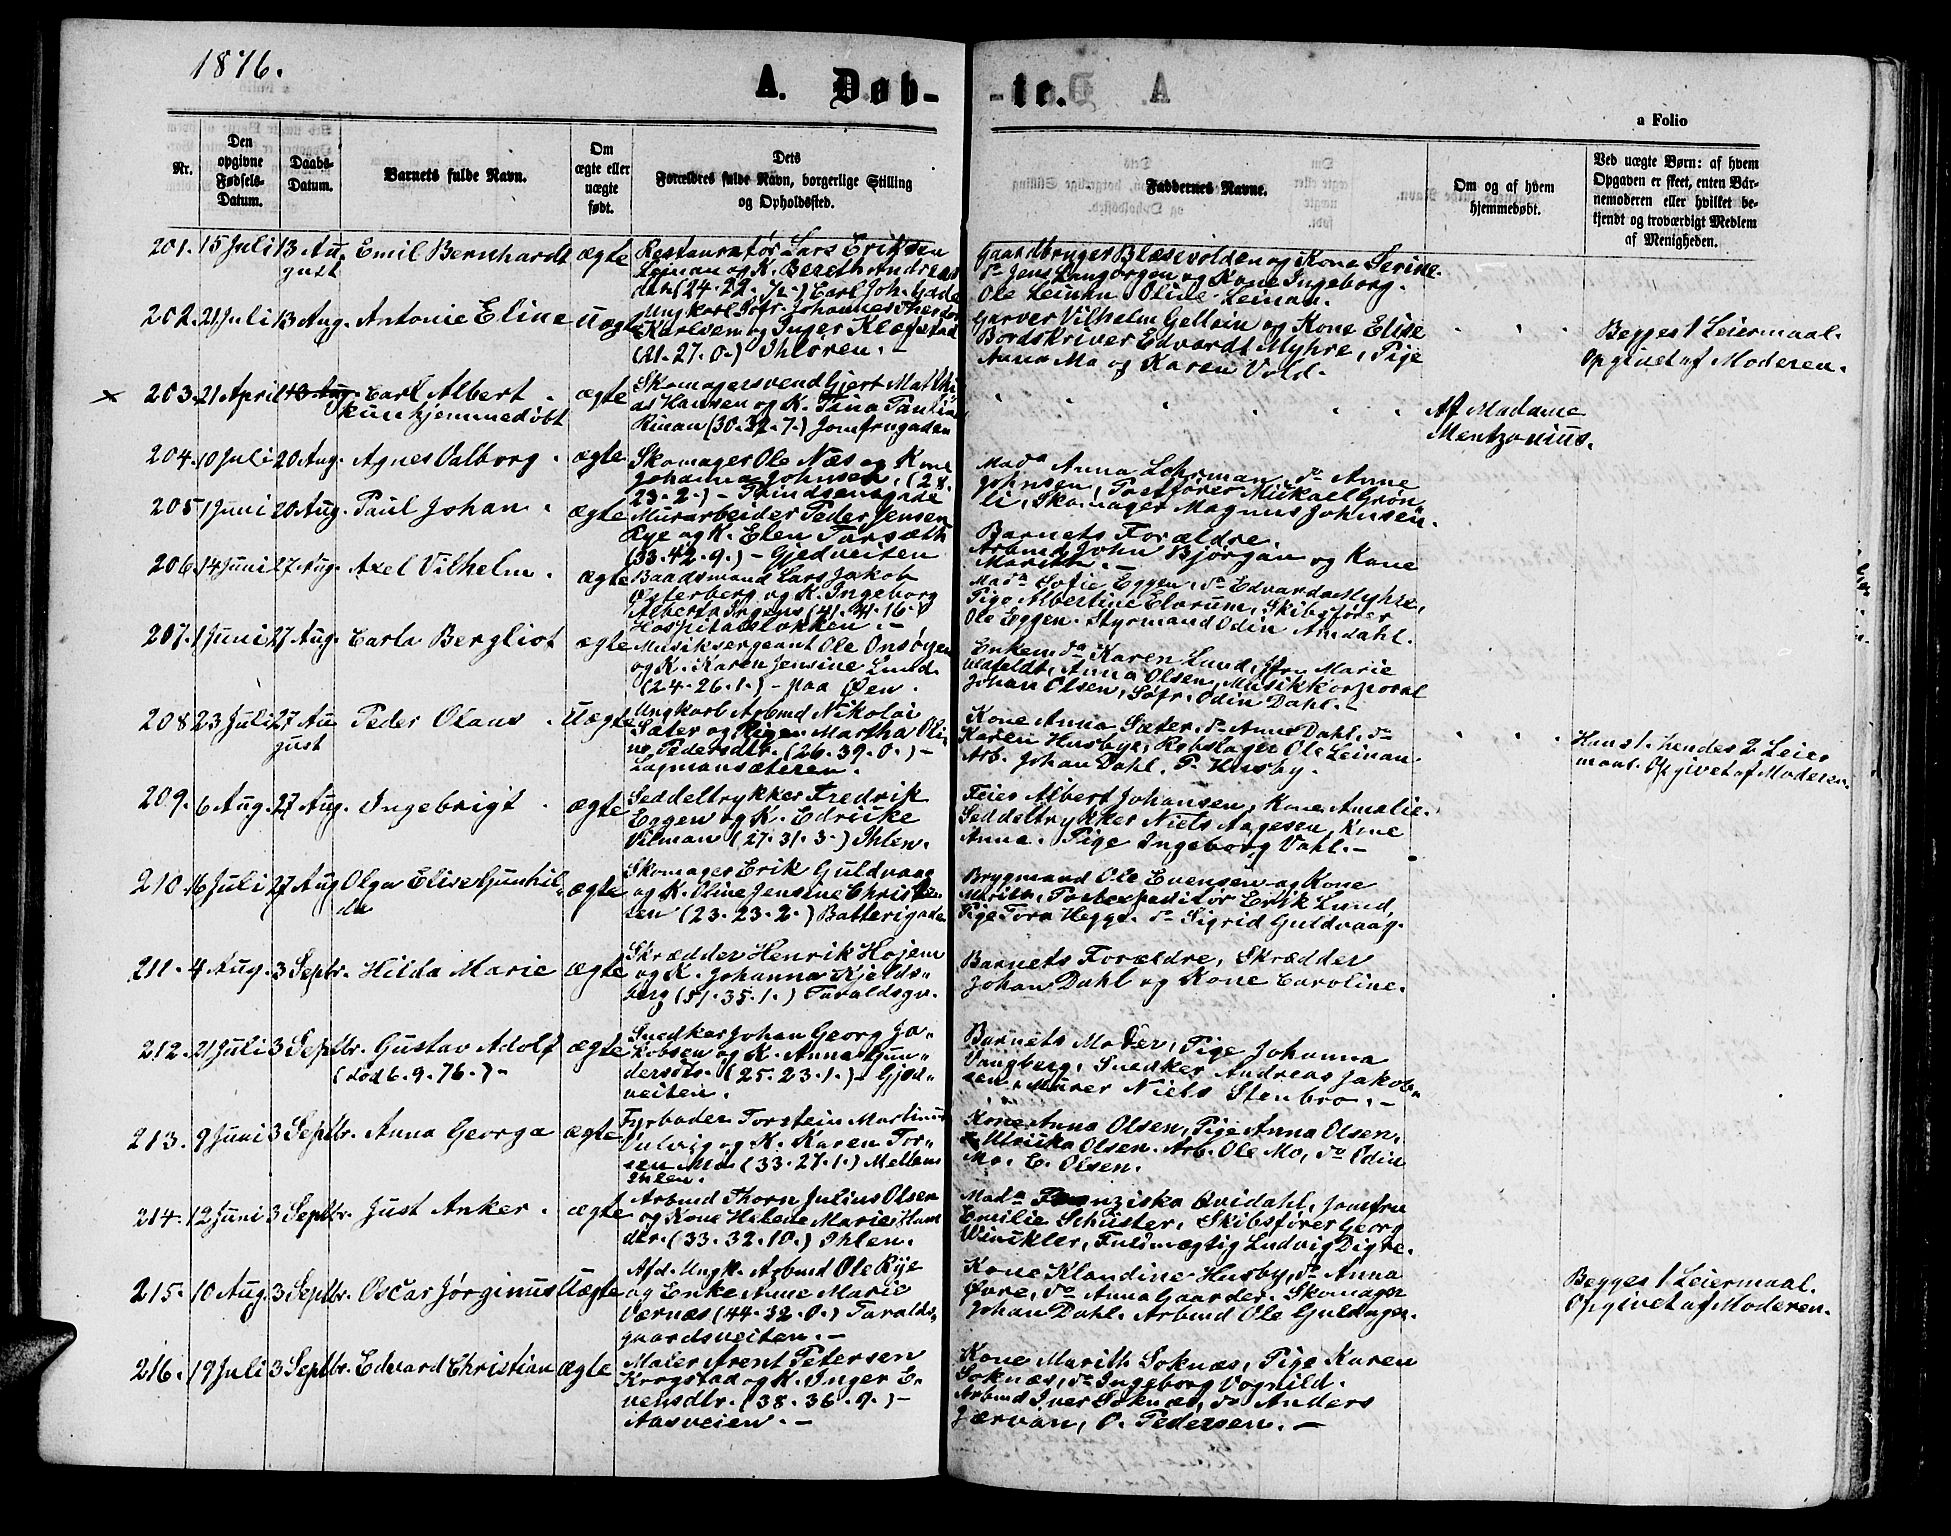 1876.
A. Døb-
-te.
a Folio
Nr.
Den
opgivne
Fødsels-
Datum.
Daabs-
Datum.
Barnets fulde Navn.
Om
ægte eller
uægte
født.
Dets
Forældres fulde Navn, borgerlige Stilling
og Opholdssted.
Faddernes Navne.
Om og af hvem
hjemmedøbt.
Ved uægte Børn: af hvem
Opgaven er skeet, enten Bar-
nemoderen eller hvilket be-
kjendt og troværdigt Medlem
af Menigheden.
201. 15 Juli 13 Au- Emil Bernhardt ægte
gust
Restauratør Lars Eriksen
Leinan og K. Bereth Andreas
dtr (24-22-½-) Carl Joh. Gade
Gaardbruger Blæsevolden og Kone Serine.
do Jens Langørgen og Kone Ingeborg.
Ole Leinan Oline Leinan.
202. 21 Juli 13 Aug. Antonie Eline uægte
Ungkarl Søfr. Johannes Theodor
Karlsen og Inger Klefstad
(21-27-0-) Ihleren.-
Garver Vilhelm Gellein og Kone Elise
Bordskriver Edvardt Myhre, Pige
Anna Mo og Karen Vold.
Begges 1 Leiermaal.
Opgivet af Moderen.
x 203. 21 April 13 Aug. Carl Albert . ægte
kun hjemmedøbt
Skomagersvend Gjert Mathi
as Hansen og K. Tina Paulia
Rinan (30-32-7-) Jomfrugaden
Af Madame
Mentzonius.
204. 10 Juli 20 Aug. Agnes Valborg . ægte
Skomager Ole Næs og Kone
Johanna Johnsen, (28.
23-2-) - Trindsensgade
Mada Anna Lohrman, do Anne
Johnsen, Postfører Mickael Grøn-
li, Skomager Magnus Johnsen.
205 1 Juni 20 Aug. Paul Johan . ægte
Murarbeider Peder Jensen
Rye og K. Elen Forsæth
(33-42-9-) - Gjedveiten
Barnets Forældre.
Arbmd. John Bjørgan og Kone
Marith. -
206. 14 Juni 27 Aug. Axel Vilhelm . ægte
Baadsmand Lars Jakob
Østerberg og K. Ingeborg
Alberta Irgens (41-41-16-)
Hospitalsløkken.-
Mada Sofie Eggen, do Edvarda Myhre,
Pige Albertine Elvrum, Skibsfører
Ole Eggen. Styrmand Odin Amdahl.
207. 1 Juni 27 Aug. Carla Bergliot ægte
Musiksergeant Ole Onsøyen
og K. Karen Jensine Lund
(24-26-1-) - paa Øen.
Enkemda Karen Lund, Jfr. Marie
Ulsfeldt, Anna Olsen, Musikkorporal
Johan Olsen, Søfr. Odin Dahl.-
208 23 Juli 27 Au Peder Olaus . Uægte
gust
Ungkarl Arbmd Nikolai
Sæter og Pigen Martha Oli
ne Pedersdtr. (26-39-0-) -
Lagmansæteren.
Kone Anna Sæter, do Anne Dahl, do
Karen Husbye, Rebslager Ole Leinan.
Arb. Johan Dahl. P. Husby.
Hans 1. hendes 2 Leier
maal. Opgivet af Moderen.
209. 6 Aug. 27 Aug. Ingebrigt . ægte
Seddeltrykker Fredrik
Eggen og K. Edricke
Vilman (27-31-3-) Ihlen.
Feier Albert Johansen, Kone Amalie.
Seddeltrykker Niels Aagesen, Kone
Anna. Pige Ingeborg Dahl.-
210. 16 Juli 27 Aug Olga Elise Gunhil- ægte
da
Skomager Erik Guldvaag
og K. Oline Jensine Christen
sen (23-23-2-) Batterigaden
Brygmand Ole Evensen og Kone
Marith, Postexpeditør Erik Lund,
Pige Tora Hegge. do Sigrid Guldvaag.
211. 4 Aug. 3 Septbr. Hilda Marie ægte
Skrædder Henrik Højem
og K. Johanna Kjelds-
berg (51-35-1-) Taraldsgv.
Barnets Forældre, Skrædder
Johan Dahl og Kone Caroline.
212. 21 Juli 3 Septbr. Gustav Adolf ægte
(død 6.9.76.)-
Snedker Johan Georg Ja-
kobsen og K. Anna Gun-
dersdtr. (25-23-1-) - Gjed-
veiten.
Barnets Moder, Pige Johanna
Vangberg, Snedker Andreas Jakob-
sen. Murer Niels Stenbro.-
213. 9 Juni 3 Septbr. Anna Georga ægte
Fyrbøder Torstein Martinus
Vulvig og K. Karen Tor-
sen Mo. (33-27-1-) Mellem
Ihlen.
Kone Anna Olsen, Pige Anna Olsen,
Ulricka Olsen. Arb. Ole Mo, do Odin
Mo. E. Olsen.
214. 12 Juni 3 Septbr. Just Anker . ægte
Arbmd Thorn Julius Olsen
og Kone Helene Marie Hans
dtr. (33-32-10-) Ihlen.
Mada Franziska Qvidahl, Jomfru
Emilie Schuster, Skibsfører Georg
Winckler, Fuldmægtig Ludvig Digre.
215. 10 Aug 3 Septbr. Oscar Jørginus Uægte
Afd. Ungk. Arbmd Ole Rye
og Enke Anne Marie
Værnes (44-32-0-) Taralds-
gaardsveiten. -
Kone Klaudine Husby, do Anna
Øvre, do Anna Gaarder. Skomager
Johan Dahl. Arbmd Ole Guldager.
Begges 1 Leiermaal.
Opgivet af Moderen.
216. 19 Juli 3 Septbr. Edvard Christian ægte
Maler Arent Petersen
Krogstad og K. Inger E-
vensdtr. (38-36-9-) -
Aasveien. -
Kone Marith Soknæs, Pige Karen
Soknæs, do Ingeborg Vognild.
Arbmd Iver Soknæs, do Anders
Jærvan, O. Pedersen. -